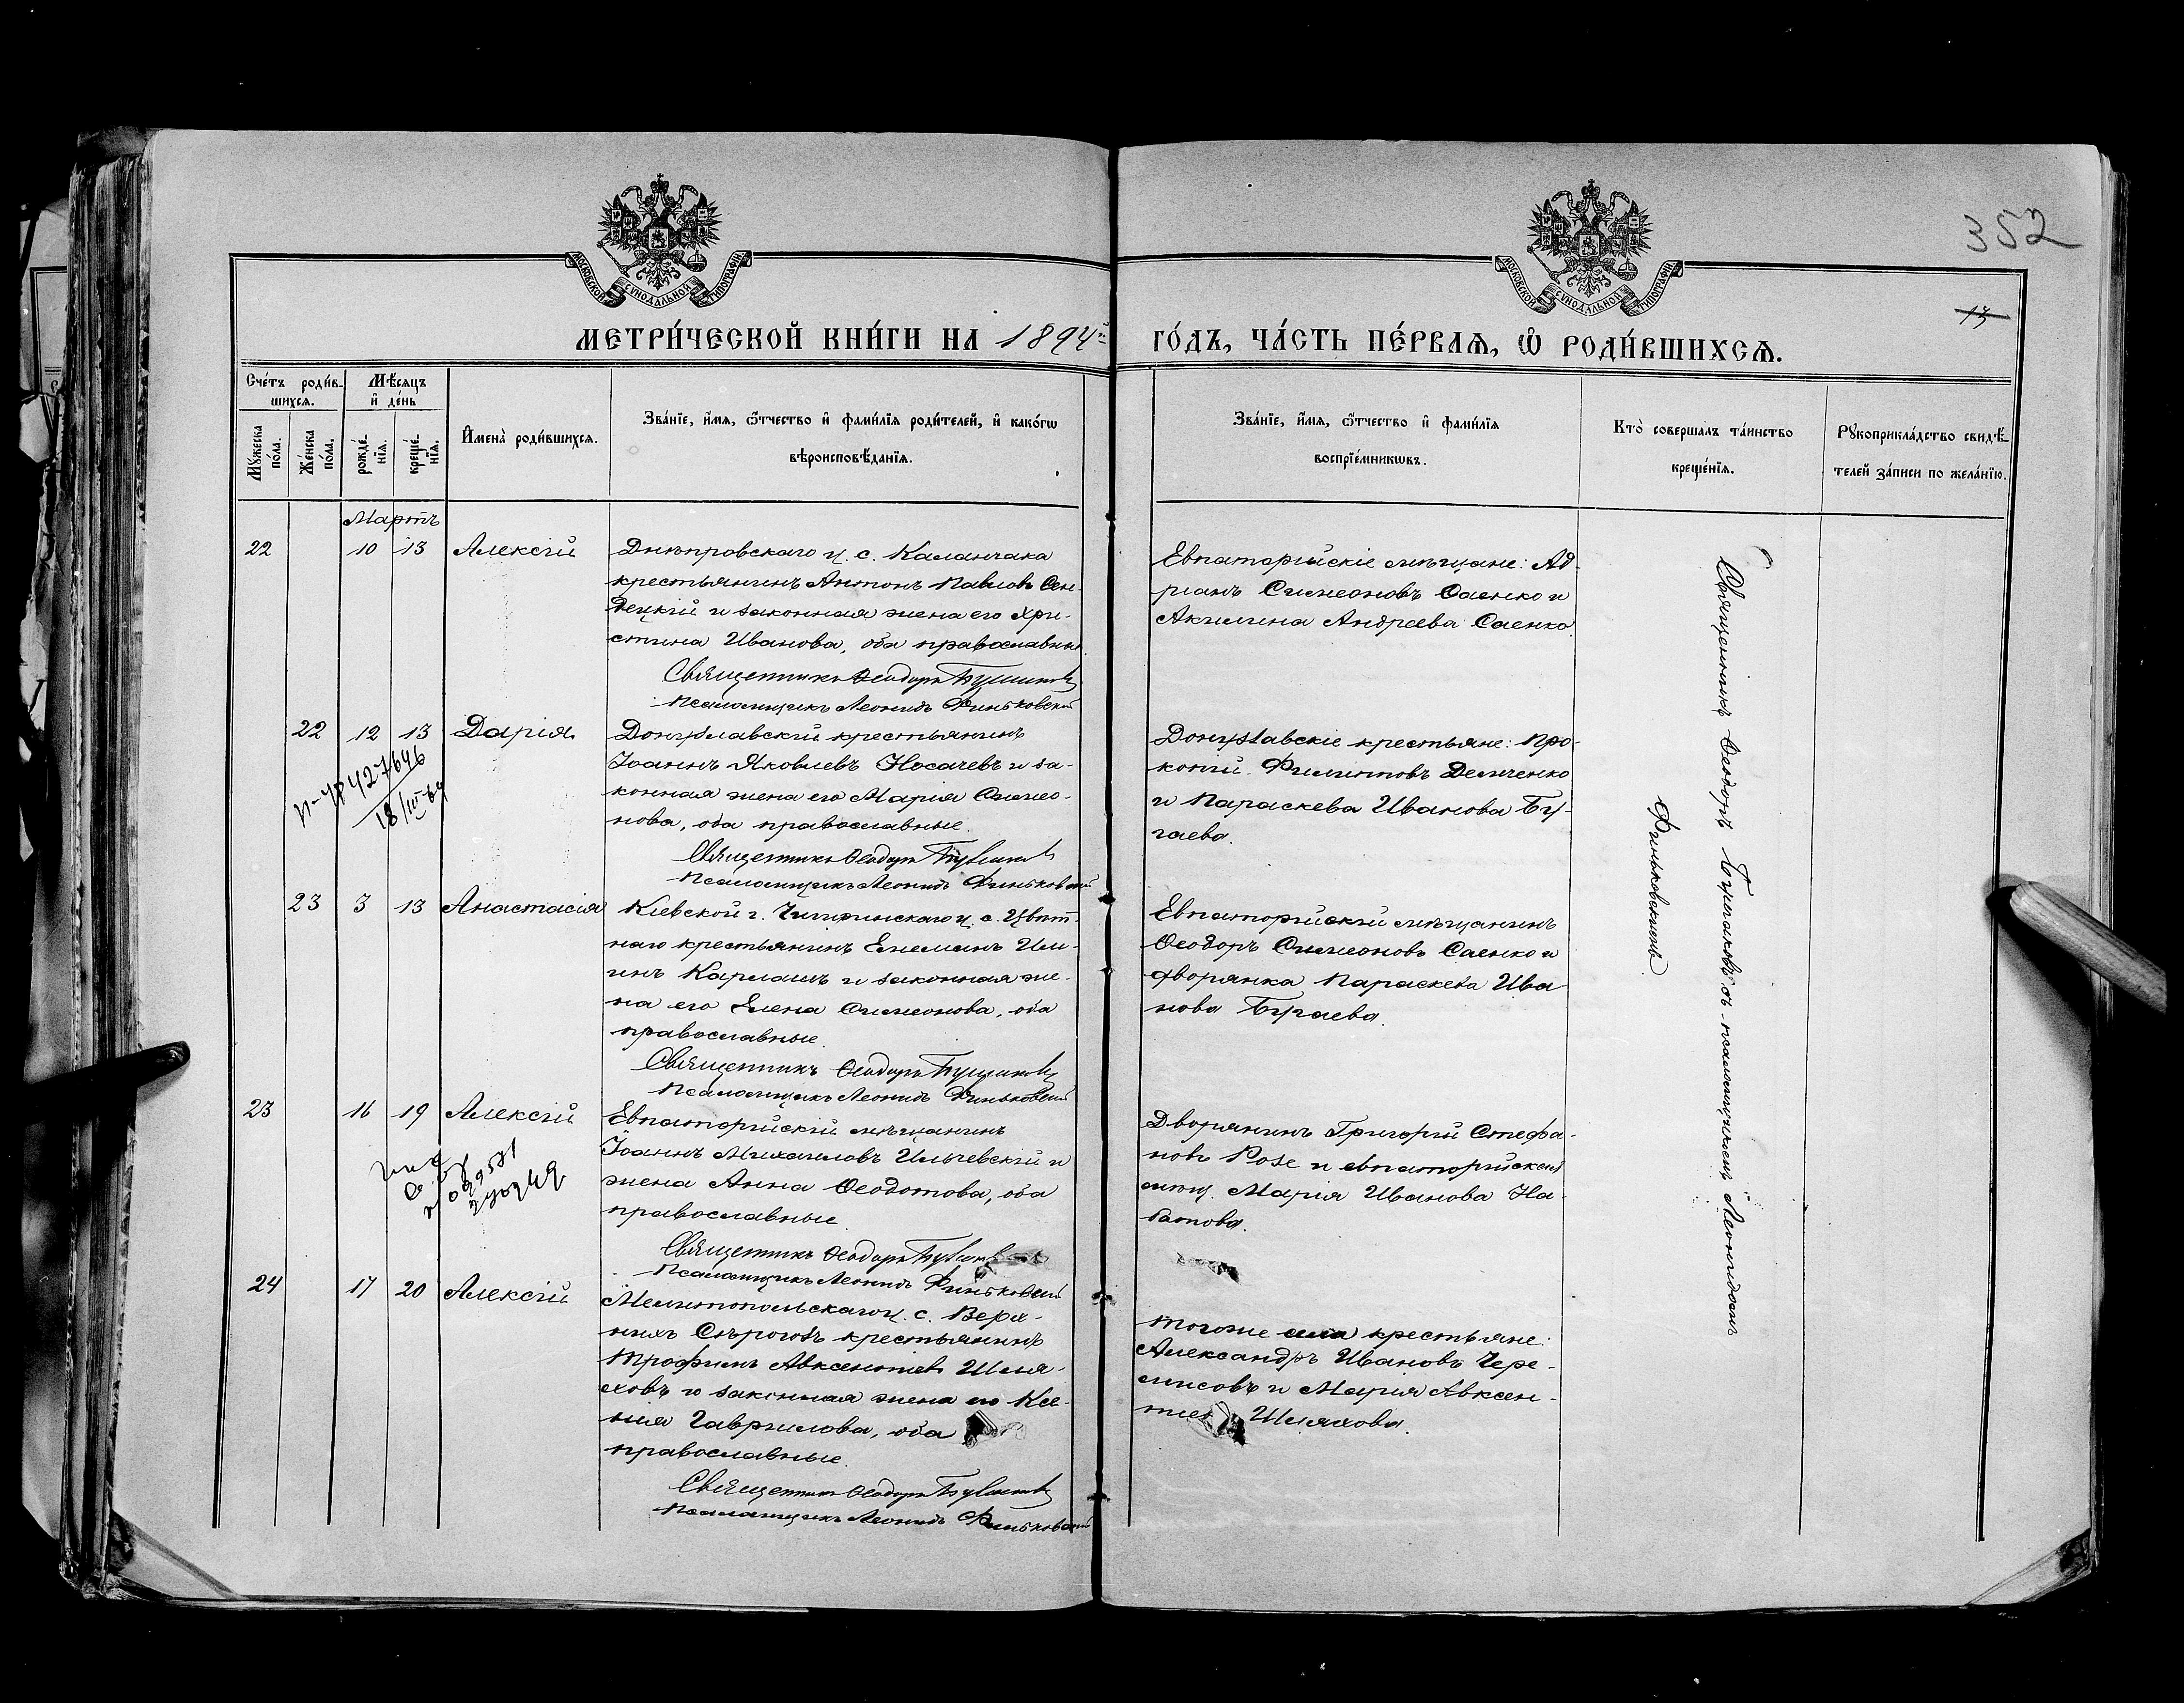 352
МОСКОВСКОЙ СѴНОДАЛЬНОЙ ТИПОГРАФІИ
МОСКОВСКОЙ СѴНОДАЛЬНОЙ ТИПОГРАФІИ
13
МЕТРИ́ЧЕСКОЙ КНИ́ГИ НА 1894й ГО́ДЪ, ЧА́СТЬ ПЕ́РВАѦ, Ѡ҆ РОДИ́ВШИХСѦ.
Сче́тъ роди́в-
шихсѧ.
Мꙋжеска по́ла.
Же́нска по́ла.
Мѣ́сѧцъ
и҆ де́нь
рожде́-
нїѧ.
креще́-
нїѧ.
И҆мена̀ роди́вшихсѧ.
Зва́нїе, и҆́мѧ, ѻ҆́тчество и҆ фами́лїѧ роди́телей, и҆ како́гѡ
вѣроисповѣ́данїѧ.
Зва́нїе, и҆́мѧ, ѻ҆́тчество и҆ фами́лїѧ
воспрїе́мникѡвъ.
Кто̀ соверша́лъ та́инство
креще́нїѧ.
Рꙋкоприкла́дство свидѣ́-
телей за́писи по жела́нїю.
Мартъ
22 10 13 Алексій
Днѣпровскаго у. с. Каланчака
крестьянинъ Антонъ Павловъ Сен-
децкій и законная жена его Хри-
стина Иванова, оба православные
Священникъ Ѳеодоръ
Псаломщикъ Леонидъ Финьковскій
Евпаторійскіе мѣщане: Ад-
ріанъ Симеоновъ Саенко и
Акилина Андреева Саенко.
22 12 13 Дарія
18/III-69
Донузлавскій крестьянинъ
Іоаннъ Яковлевъ Носачевъ и за-
конная жена его Марія Симео-
нова, оба православные.
Священникъ Ѳеодоръ
Псаломщикъ Леонидъ Финьковскій
Донузлавскіе крестьяне: Про-
копій Филиповъ Демченко
и Параскева Иванова Бу-
гаева.
23 3 13 Анастасія
Кіевской г. Чигиринскаго у. с. Цвѣт-
наго крестьянинъ Емеліанъ Иль-
инъ Карлашъ и законная же-
на его Елена Симеонова, оба
православные.
Священникъ Ѳеодоръ
Псаломщикъ Леонидъ Финьковскій
Евпаторійскій мѣщанинъ
Ѳеодоръ Симеоновъ Саенко и
дворянка Параскева Ива-
нова Бугаева.
23 16 19 Алексій
Евпаторійскій мѣщанинъ
Іоаннъ Михаиловъ Ильчевскій и
жена Анна Ѳеодотова, оба
православные.
Священникъ Ѳеодоръ
Псаломщикъ Леонидъ Финьковскій
Дворянинъ Григорій Стефа-
новъ Розе и евпаторійская
мѣщ. Марія Иванова На-
батова.
24 17 20 Алексій
Мелитопольскаго у. с. Верх-
нихъ Сѣрогозъ крестьянинъ
Трофимъ Авксентіевъ Шля-
ховъ и законная жена его Ксе-
нія Гаврилова, оба
православные.
Священникъ Ѳеодоръ
Псаломщикъ Леонидъ Финьковскій
Тогоже села крестьяне:
Александръ Ивановъ Чере-
мисовъ и Марія Авксен-
тіев Шляхова.
Священникъ Ѳеодоръ съ псаломщикомъ Леонидомъ
Финьковскимъ.